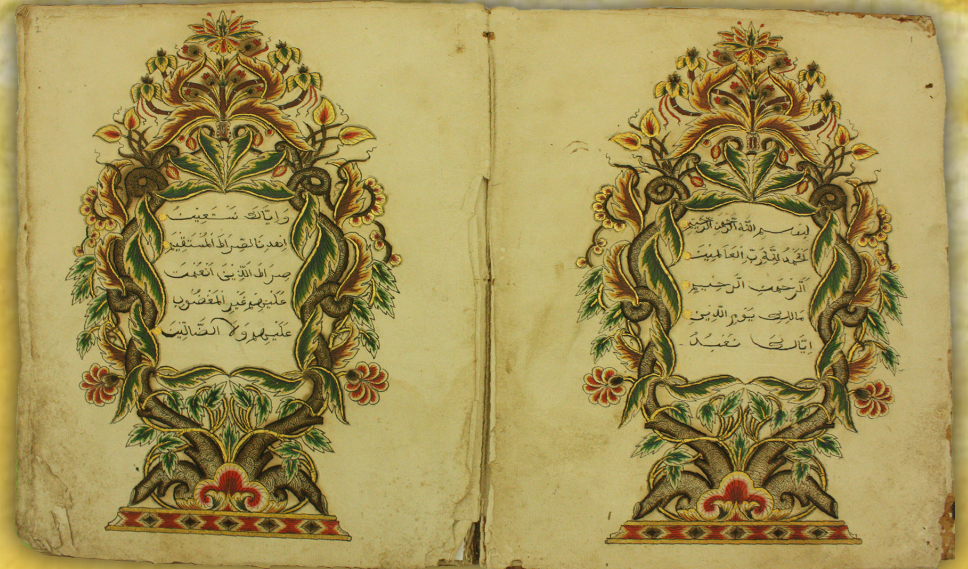 بسم الله الرحمن الرحيم
الحمد لله رب العالمين
الرحمن الرحيم
مالك يوم الدين
إياك نعبد
وَإِيَّاكَ نَسْتَعِينُ
اهدنا الصِّرَاطَ الْمُسْتَقِيمَ
صِرَاطَ الَّذِينَ أَنْعَمْتَ
عَلَيْهِمْ غَيْرِ الْمَغْضُوبِ
عَلَيْهِمْ وَلَا الضَّالِّينَ